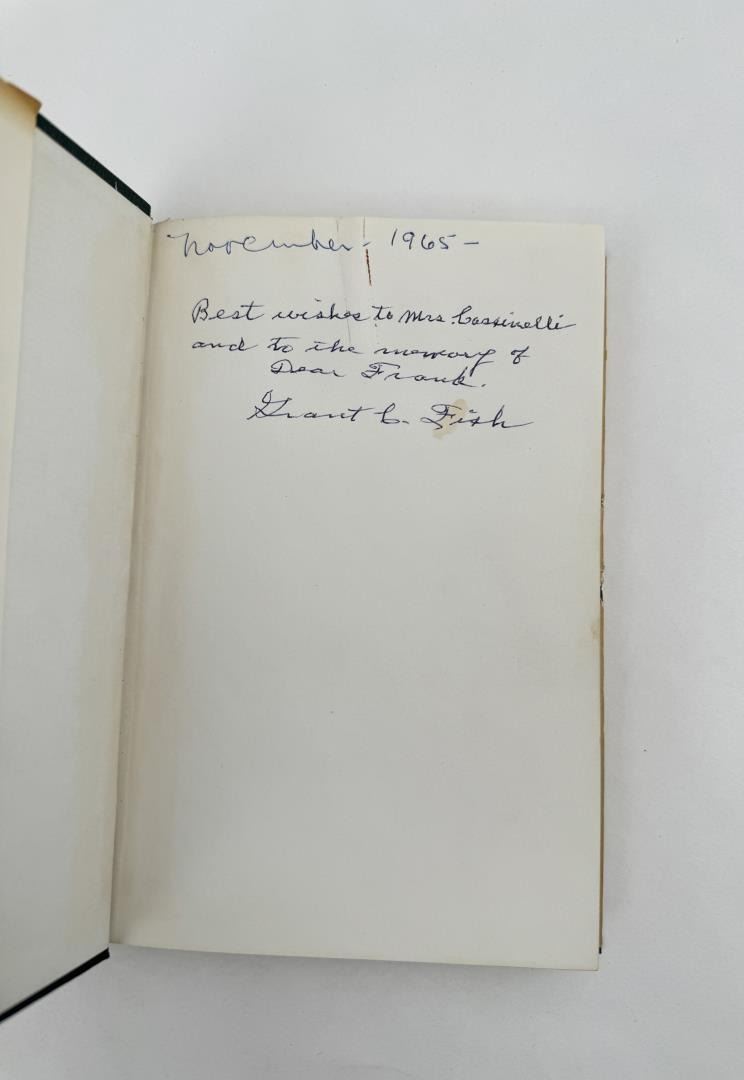 November - 1965 -
Best wishes to Mrs. Cassinelli
and to the memory of
Dear Frank.
Grant C. Fish